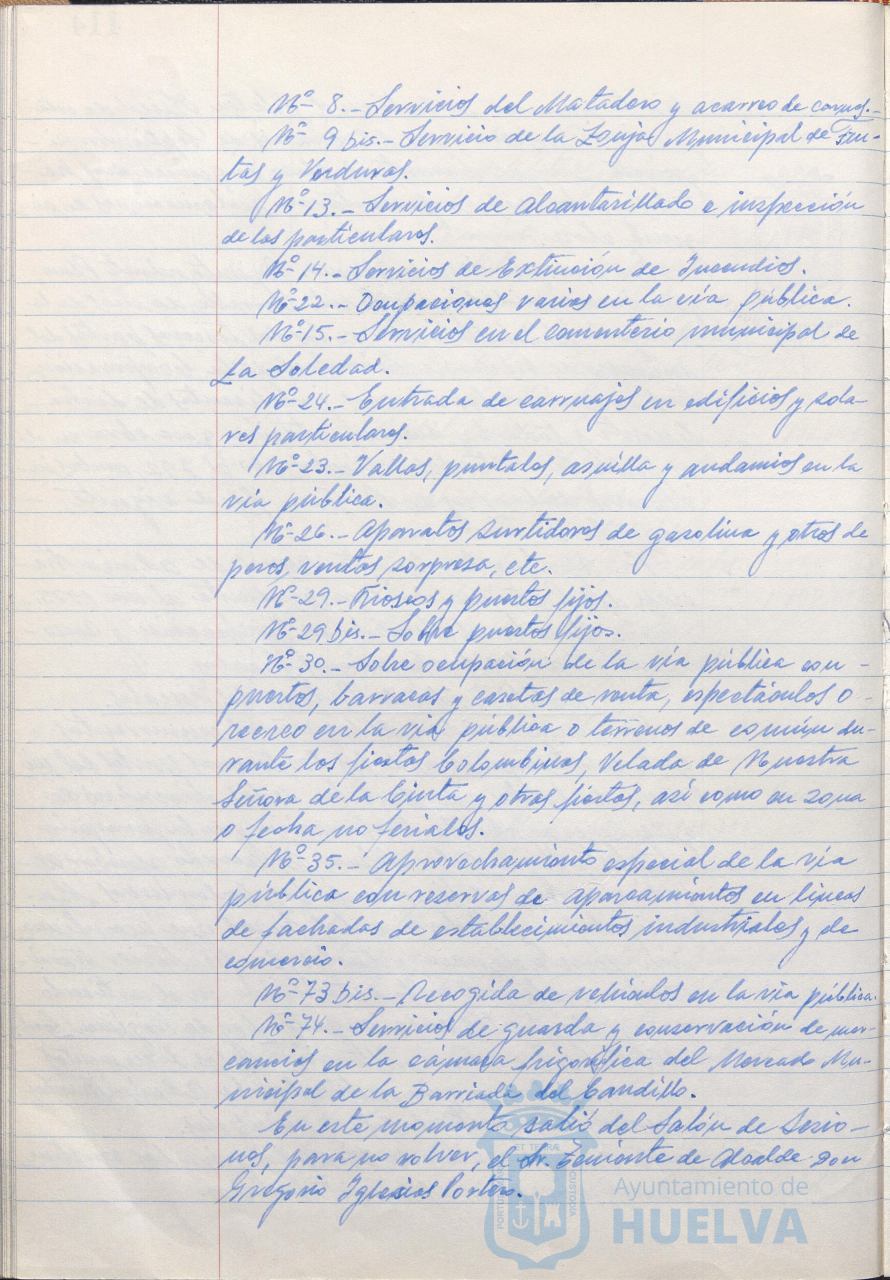 Nº 8.- Servicios del Matadero y acarreo de carnes.-
Nº 9 bis.- Servicio de la Lonja Municipal de Fru-
tas y Verduras.
Nº 13.- Servicios de alcantarillado e inspección
de los particulares.
Nº 14.- Servicios de Extinción de Incendios.
Nº 22.- Ocupaciones varias en la vía pública.
Nº 15.- Servicios en el cementerio municipal de
La Soledad.
Nº 24.- Entrada de carruajes en edificios y sola-
res particulares.
Nº 23.- Vallas, puntales, asnilla y andamios en la
vía pública.
Nº 26.- Aparatos surtidores de gasolina y otros de
peros, ventas sorpresa, etc.
Nº 29.- Kioscos y puestos fijos.
Nº 29 bis.- Sobre puestos fijos.
Nº 30.- Sobre ocupación de la vía pública con -
puestos, barracas y casetas de venta, espectáculos o -
recreo en la vía pública o terrenos de común du-
rante las fiestas Colombinas, Velada de Nuestra
Señora de la Cinta y otras fiestas, así como en zona
o fecha no feriales.
Nº 35.- Aprovechamiento especial de la vía
pública con reservas de aparcamientos en líneas
de fachadas de establecimientos industriales y de
comercio.
Nº 73 bis.- Recogida de vehículos en la vía pública.
Nº 74.- Servicios de guarda y conservación de mer-
cancías en la cámara frigorífica del Mercado Mu-
nicipal de la Barriada del Candillo.
En este momento salió del Salón de Sesio-
nes, para no volver, el Sr. Teniente de Alcalde Don
Gregorio Iglesias Portero.
PORTUS
ET TERRA
CUSTODIA
Ayuntamiento de
HUELVA